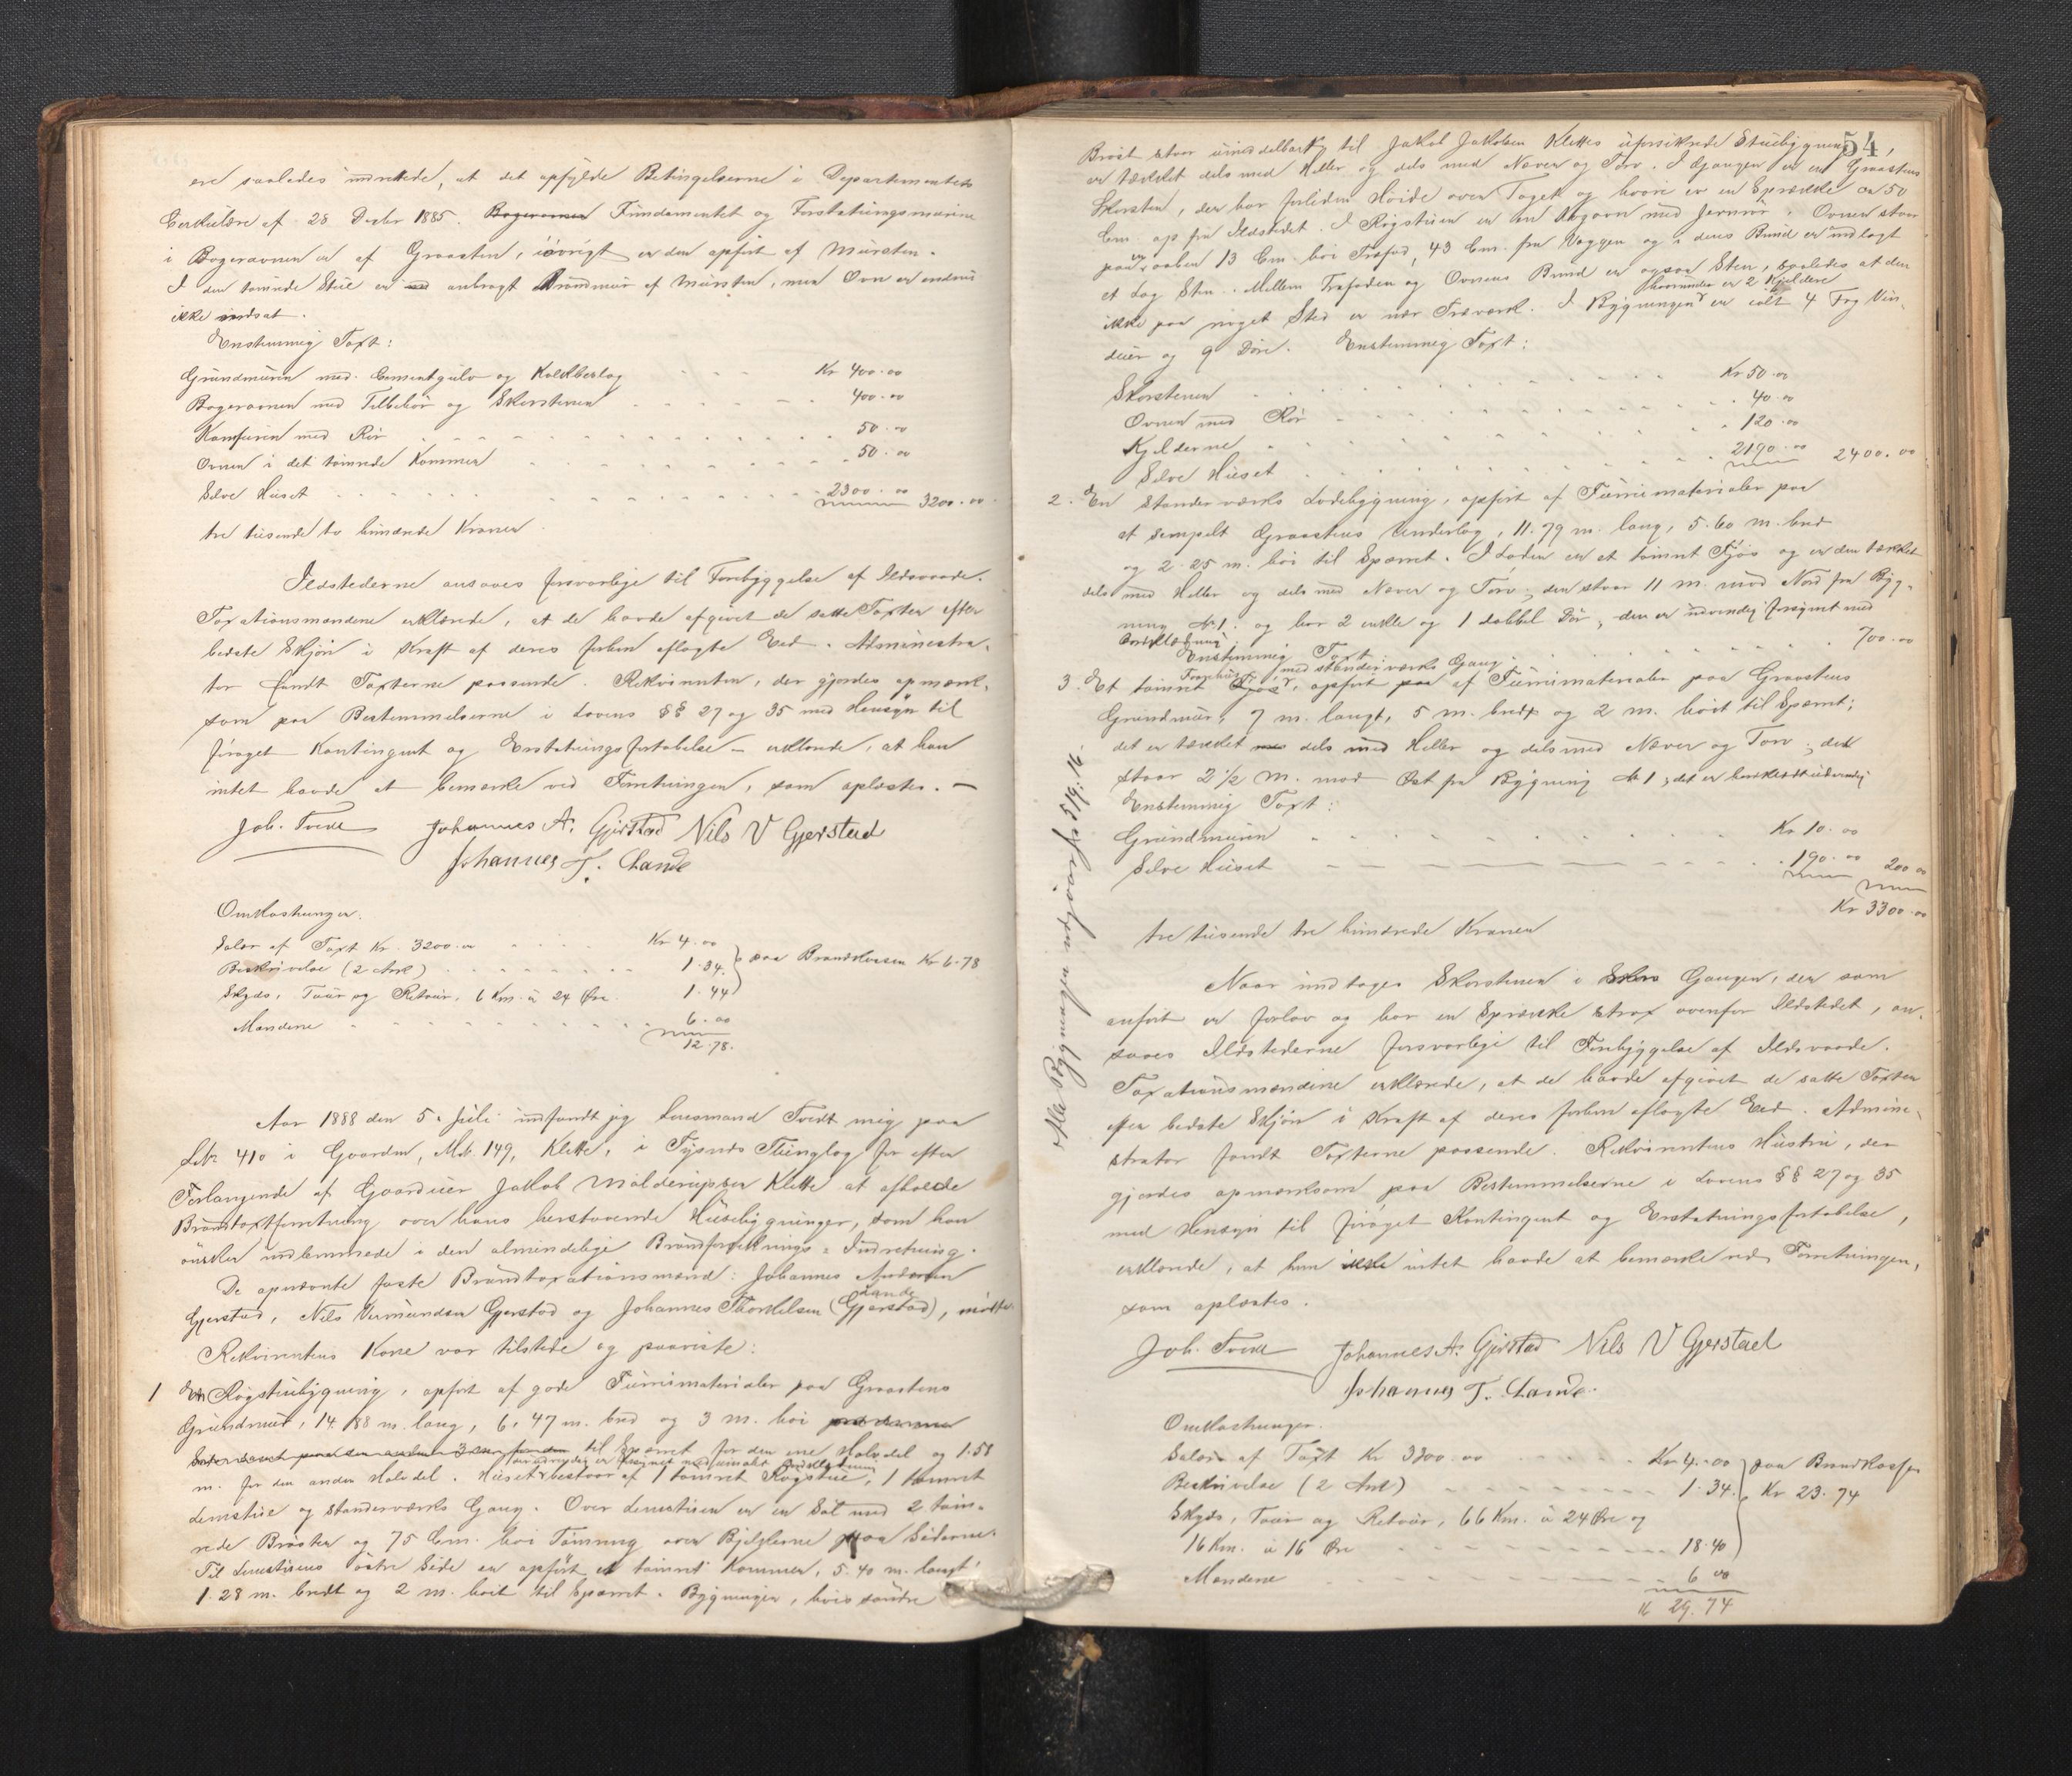 ere saaledes indrettede, at det opfylde Betingelserne i Departementets
Cirkulære af 28 Decbr 1885. Bagerovnen Fundamentet og Forstøtningsmurene
i Bagerovnen er af Graasten, iøvrigt er den opført af Mursten.
I den tømrede Stue er anbragt Brandmur af Mursten, men Ovn er endnu
ikke indsat.
Enstemmig Taxt:
Grundmuren med Cementgulv og Kalkbeslag Kr 400.00
Bagerovnen med Tilbehør og Skorstenen 400.00
Komfuren med Rør 50.00
Ovnen i det tømrede Kammer 50.00
Selve Huset 2300.00 3200.00
tre tusende to hundrede Kroner
Ildstederne ansaaes forsvarlige til Forebyggelse af Ildsvaade.
Taxationsmændene erklærede, at de havde afgivet de satte Taxter efter
bedste Skjøn i Kraft af deres forhen aflagte Eed. Administra-
tor fandt Taxterne passende. Rekvirenten, der gjordes opmærk-
som paa Bestemmelserne i Lovens §§ 27 og 35 med Hensyn til
forøget Kontingent og Erstatningsfortabelse – erklærede, at han
intet havde at bemærke ved Forretningen, som oplæstes. —
Joh. Tvedt Johannes A. Gjerstad Nils V Gjerstad
Johannes T. Lande
Omkostninger:
Salær af Taxt Kr. 3200.00 Kr 4.00
Beskrivelse (2 Ark) 1.34 paa Brandkassen Kr 6.78
Skyds, Tour og Retour, 6 Km. à 24 Øre 1.44
Mændene 6.00
12.78.
Aar 1888 den 5. Juli indfandt jeg Lensmand Tvedt mig paa
Lbr 410 i Gaarden, Mtr 149, Klette, i Tysnes Thinglag for efter
Forlangende af Gaardbruger Jakob Kletté at afholde
Brandtaxtforretning over hans herstaaende Husebygninger, som han
ønsker indlemmede i den almindelige Brandforsikrings-Indretning.
De opnævnte faste Brandtaxationsmænd: Johannes Andersen
Gjerstad, Nils Vermundsen Gjerstad og Johannes Thorkelsen Lande (Gjerstad), mødte.
Rekvirentens Kone var tilstede og paaviste:
1 En Røgstuebygning, opført af gode Furumaterialer paa Graastens
Grundmur, 14.88 m. lang, 6.47 m. bred og 3 m. høi
til Sparret for den ene Halvdel og 1.58
m. for den anden Halvdel. Huset bestaar af 1 tømret Røgstue, 1 tømret
Lemstue og standerværks Gang. Over Lemstuen er en Sal med 2 tøm-
rede Brøster og 75 Cm. høi Tømring over Bjelkerne paa Siderne.
Til Lemstuens østre Side er opført et tømret Kammer, 5.40 m. langt
1.28 m. bredt og 2 m. høit til Sparret. Bygningen, hvis søndre
54
Brøst staar umiddelbart til Jakob Jakobsen Klettes uforsikrede Stuebygning,
er tækket dels med Heller og dels med Næver og Torv. I Gangen er en Graastens
Skorsten, der har forliden Høide over Taget og hvori er en Sprække ca 50
Cm. op fra Ildstedet. I Røgstuen er en Kogeovn med Jernrør. Ovnen staar
paa en aaben 13 Cm. høi Træfod, 43 Cm. fra Væggen og i deres Bund er indlagt
et Lag Sten. Mellem Træfoden og Ovnens Bund er ogsaa Sten, saaledes at den
ikke paa noget Sted er nær Træværk. I Bygningen hvorunder er 2 Kjeldere er ialt 4 Fag Vin-
duer og 9 Døre. Enstemmig Taxt:
Skorstenen Kr 50.00
Ovnen med Rør 40.00
Kjelderne 120.00
Selve Huset 2190.00 2400.00
2. En standerværks Ladebygning, opført af Furumaterialer paa
et simpelt Graastens Underlag, 11.79 m. lang, 5.60 m. bred
og 2.25 m. høi til Sparret. I Laden er et tømret Fjøs og er den tækket
dels med Heller og dels med Næver og Torv; den staar 11 m. mod Nord fra Byg-
ning № 1. og har 2 enkle og 1 dobbel Dør; den er udvendig forsynet med
Bordklædning.
Enstemmig Taxt 700.00
3. Et tømret med standerværks Gang, opført af Furumaterialer paa Graastens
Grundmur, 7 m. langt, 5 m. bredt og 2 m. høit til Sparret;
det er tækket dels med Heller og dels med Næver og Torv; det
staar 2½ m. mod Øst fra Bygning № 1;
Enstemmig Taxt:
Grundmuren Kr 10.00
Selve Huset 190.00 200.00
Kr 3300.00
tre tusende tre hundrede Kroner
Naar undtages Skorstenen i Gangen, der som
anført er forlav og har en Sprække strax ovenfor Ildstedet, an-
saaes Ildstederne forsvarlige til Forebyggelse af Ildsvaade.
Taxationsmændene erklærede, at de havde afgivet de satte Taxter
efter bedste Skjøn i Kraft af deres forhen aflagte Eed. Admini-
strator fandt Taxterne passende. Rekvirentens Hustru, der
gjordes opmærksom paa Bestemmelserne i Lovens §§ 27 og 35
med Hensyn til forøget Kontingent og Erstatningsfortabelse,
erklærede, at hun ikke intet havde at bemærke ved Forretningen,
som oplæstes.
Joh. Tvedt Johannes A. Gjerstad Nils V Gjerstad
Johannes T. Lande.
Omkostninger.
Salær af Taxt Kr 3300.00 Kr 4.00 paa Brandkassen
Beskrivelse (2 Ark) 1.34. Kr 23.74
Skyds, Tour og Retour, 66 Km. à 24 Øre og
16 Km. à 16 Øre 18.40
Mændene 6.00
Kr 29.74